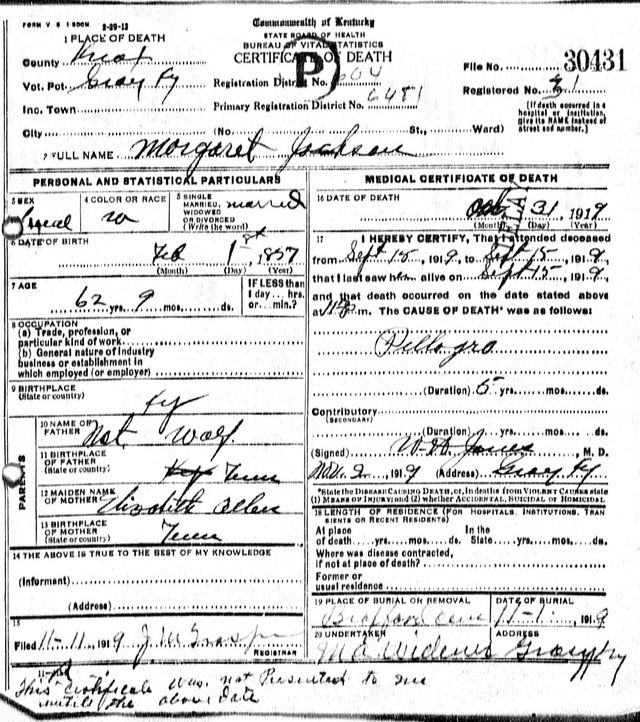 FORM V. S. 1-50DM 3-29-12
Commonwealth of Kentucky
STATE BOARD OF HEALTH
BUREAU OF VITAL STATISTICS
CERTIFICATE OF DEATH
P
1 PLACE OF DEATH
County Knox
Vot. Pct. Gray Ky
Inc. Town
City (No. St., Ward)
Registration District No. 604
Primary Registration District No. 6481
File No. 30431
Registered No. 31
(If death occurred in a hospital or institution, give its NAME instead of street and number.)
2 FULL NAME Margaret Jackson
PERSONAL AND STATISTICAL PARTICULARS
3 SEX
4 COLOR OR RACE w
5 SINGLE MARRIED, WIDOWED OR DIVORCED (Write the word) married
6 DATE OF BIRTH Feb 1st 1857
(Month) (Day) (Year)
7 AGE 62 yrs. 9 mos. ds.
IF LESS than 1 day... hrs. or... min.?
8 OCCUPATION
(a) Trade, profession, or particular kind of work
(b) General nature of industry business or establishment in which employed (or employer)
9 BIRTHPLACE
(State or country) Ky
PARENTS
10 NAME OF FATHER Nat Wolf
11 BIRTHPLACE OF FATHER
(State or country) Tenn
12 MAIDEN NAME OF MOTHER Elizabeth Allen
13 BIRTHPLACE OF MOTHER
(State or country) Tenn
14 THE ABOVE IS TRUE TO THE BEST OF MY KNOWLEDGE
(Informant)
(Address)
15
Filed 11-11 1919
REGISTRAR
MEDICAL CERTIFICATE OF DEATH
16 DATE OF DEATH Oct 31 1919
(Month) (Day) (Year)
17 I HEREBY CERTIFY, That I attended deceased
from Sept 15, 1919, to Sept 15, 1919,
that I last saw her alive on Sept 15, 1919,
and that death occurred on the date stated above
at m. The CAUSE OF DEATH* was as follows:
Pellagra
(Duration) 5 yrs. mos. ds.
Contributory
(SECONDARY)
(Duration) yrs. mos. ds.
(Signed) Jones, M. D.
Nov. 2 1919 (Address) Gray Ky
*State the DISEASE CAUSING DEATH, or, in deaths from VIOLENT CAUSES state
(1) MEANS OF INJURY and (2) whether ACCIDENTAL, SUICIDAL or HOMICIDAL
18 LENGTH OF RESIDENCE (FOR HOSPITALS, INSTITUTIONS, TRANSIENTS OR RECENT RESIDENTS)
At place of death yrs. mos. ds.
In the State yrs. mos. ds.
Where was disease contracted, if not at place of death?
Former or usual residence
19 PLACE OF BURIAL OR REMOVAL
DATE OF BURIAL
11-1- 1919
20 UNDERTAKER
ADDRESS
Gray Ky
This certificate was not Presented to me
until the above date